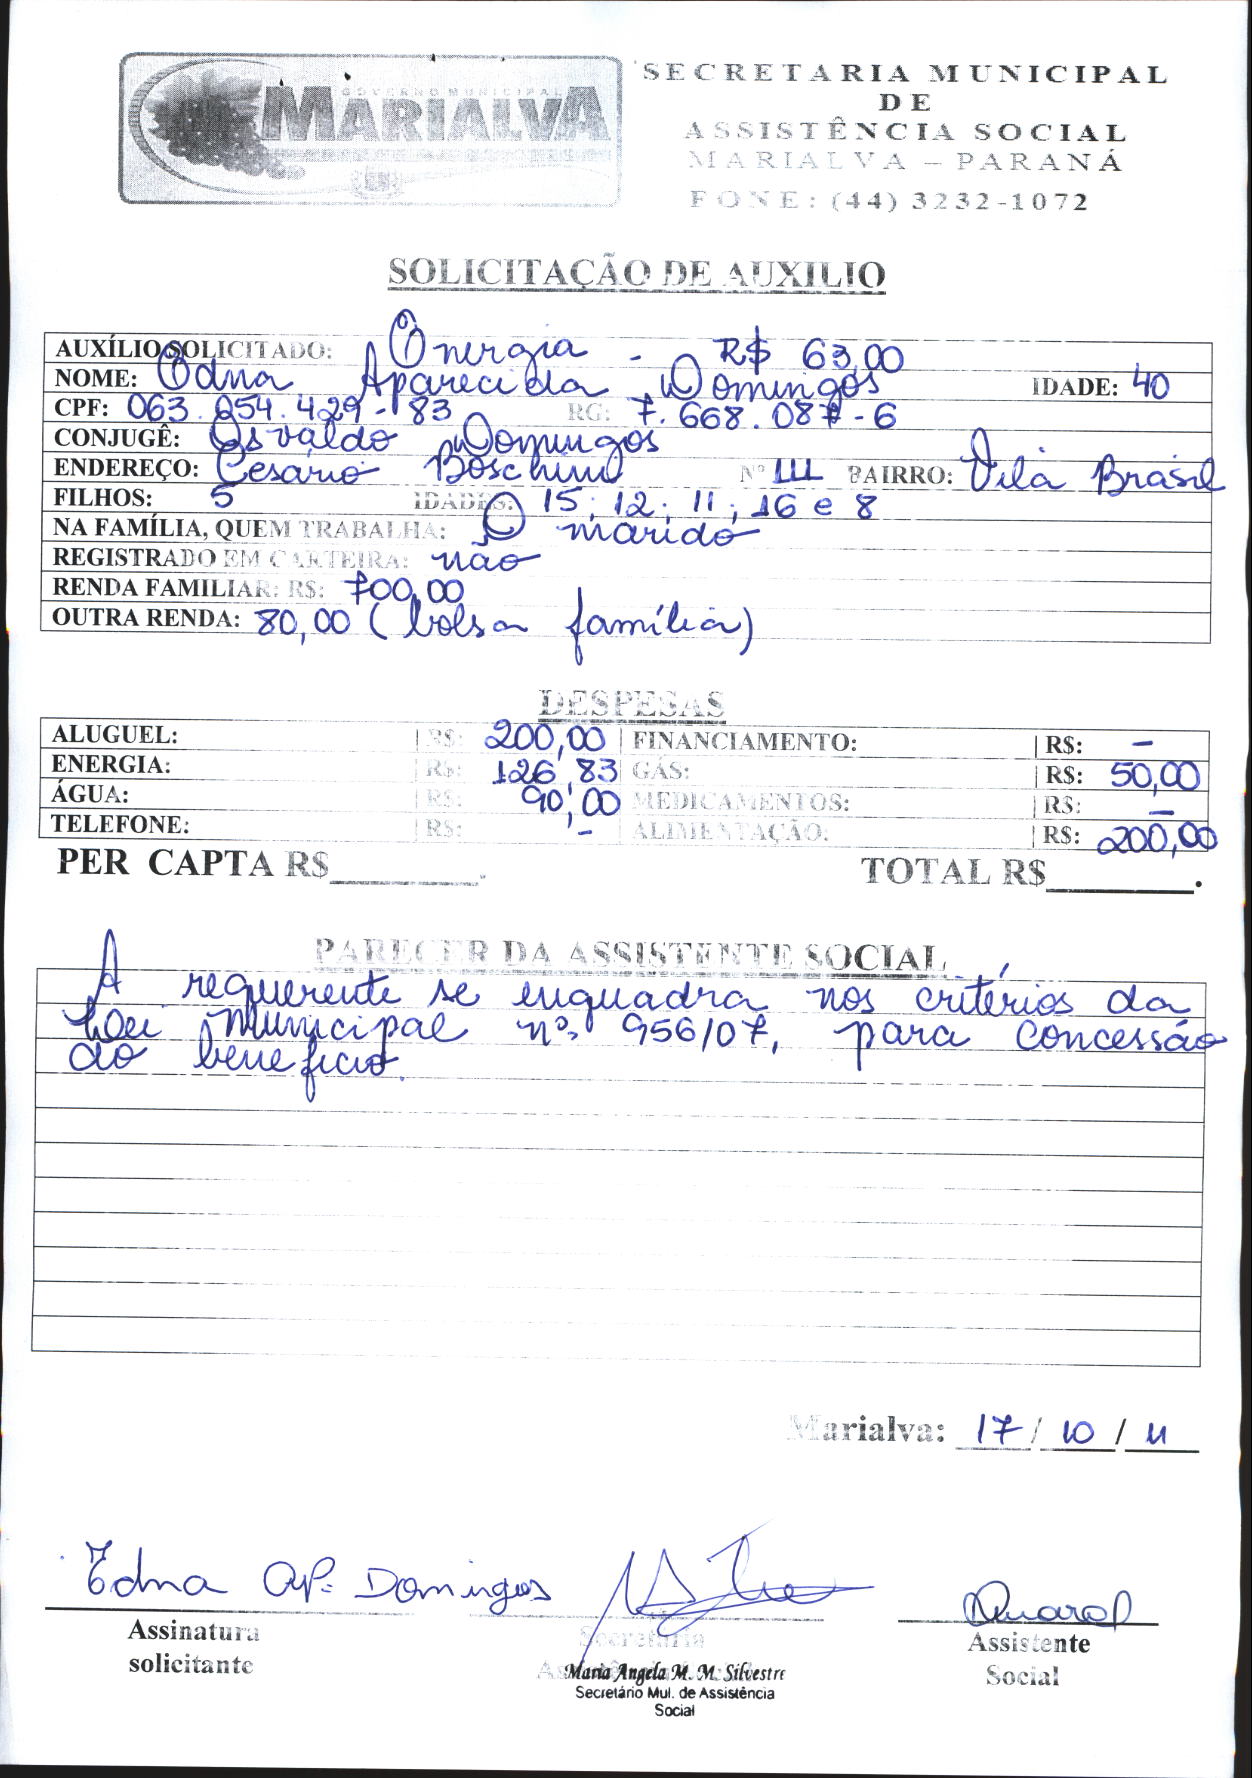 GOVERNO MUNICIPAL
MARIALVA
SECRETARIA MUNICIPAL
DE
ASSISTÊNCIA SOCIAL
MARIALVA – PARANÁ
FONE: (44) 3232-1072
SOLICITAÇÃO DE AUXILIO
AUXÍLIO SOLICITADO: Energia - R$ 63,00
NOME: Edna Aparecida Domingos IDADE: 40
CPF: 063.054.429-83 RG: 7.668.087-6
CONJUGÊ: Osvaldo Domingos
ENDEREÇO: Cesário Boschini Nº 111 BAIRRO: Vila Brasil
FILHOS: 5 IDADES: 15; 12; 11; 16 e 8
NA FAMÍLIA, QUEM TRABALHA: O marido
REGISTRADO EM CARTEIRA: não
RENDA FAMILIAR: R$: 700,00
OUTRA RENDA: 80,00 (bolsa família)
DESPESAS
ALUGUEL: R$: 200,00 FINANCIAMENTO: R$: –
ENERGIA: R$: 126,83 GÁS: R$: 50,00
ÁGUA: R$: 90,00 MEDICAMENTOS: R$: –
TELEFONE: R$: – ALIMENTAÇÃO: R$: 200,00
PER CAPTA R$________. TOTAL R$________.
PARECER DA ASSISTENTE SOCIAL
A requerente se enquadra nos critérios da
Lei Municipal nº 956/07, para concessão
do benefício.
Marialva: 17/10/11
Edna Ap. Domingos
Assinatura solicitante
Secretária
Maria Angela M. M. Silvestre
Secretário Mul. de Assistência
Social
Assistente
Social